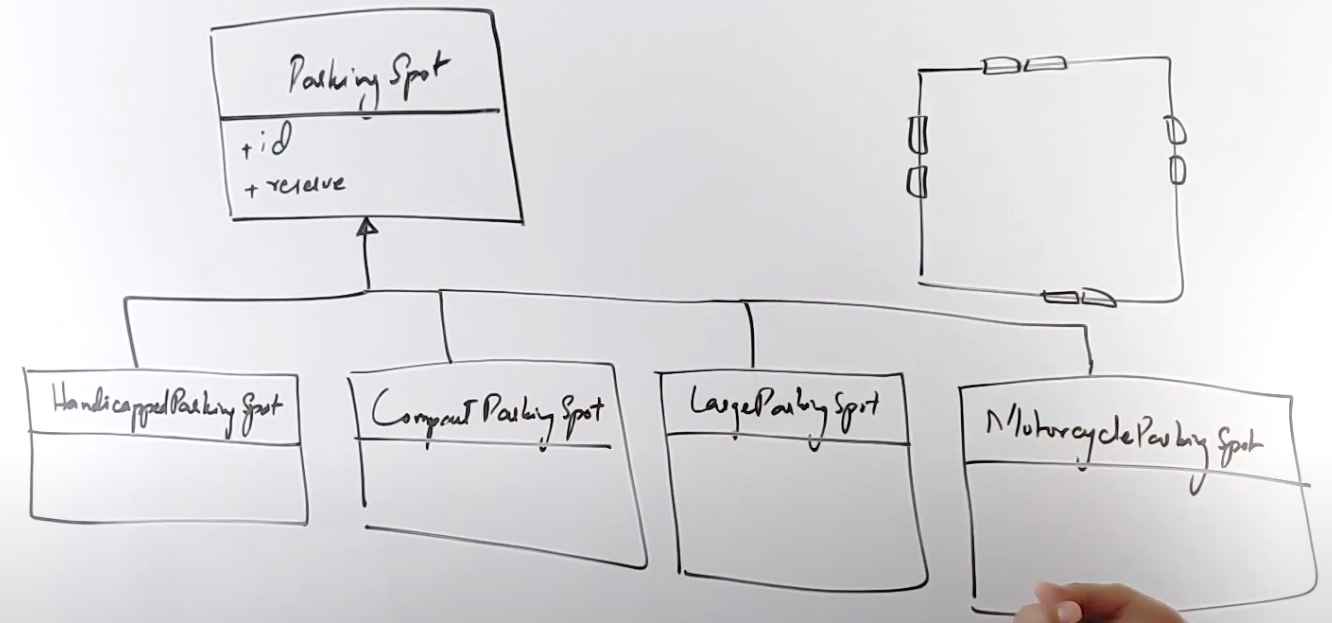 Parking Spot
+ id
+ reserve
HandicappedParking Spot
Compact Parking Spot
LargeParking Spot
MotorcycleParking Spot